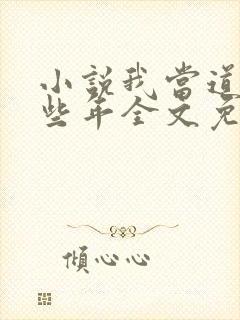 小說我當道
些年全文免
傾心心